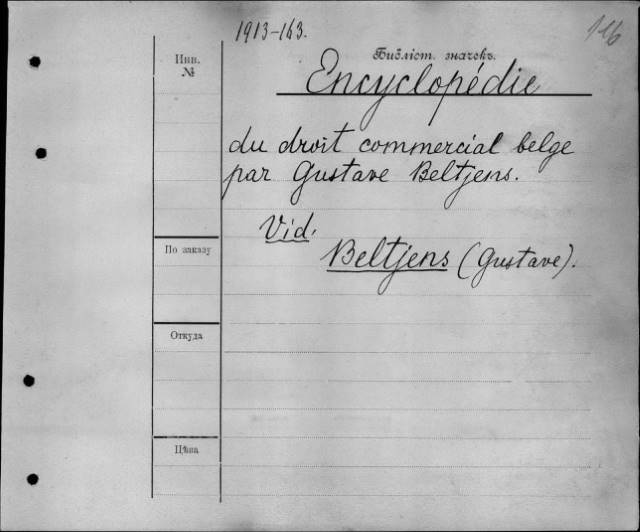 1913-163.
116
Инв.
№
Библіот. значекъ.
Encyclopédie
du droit commercial belge
par Gustave Beltjens.
Vid.
По заказу
Beltjens (Gustave).
Откуда
Цѣна